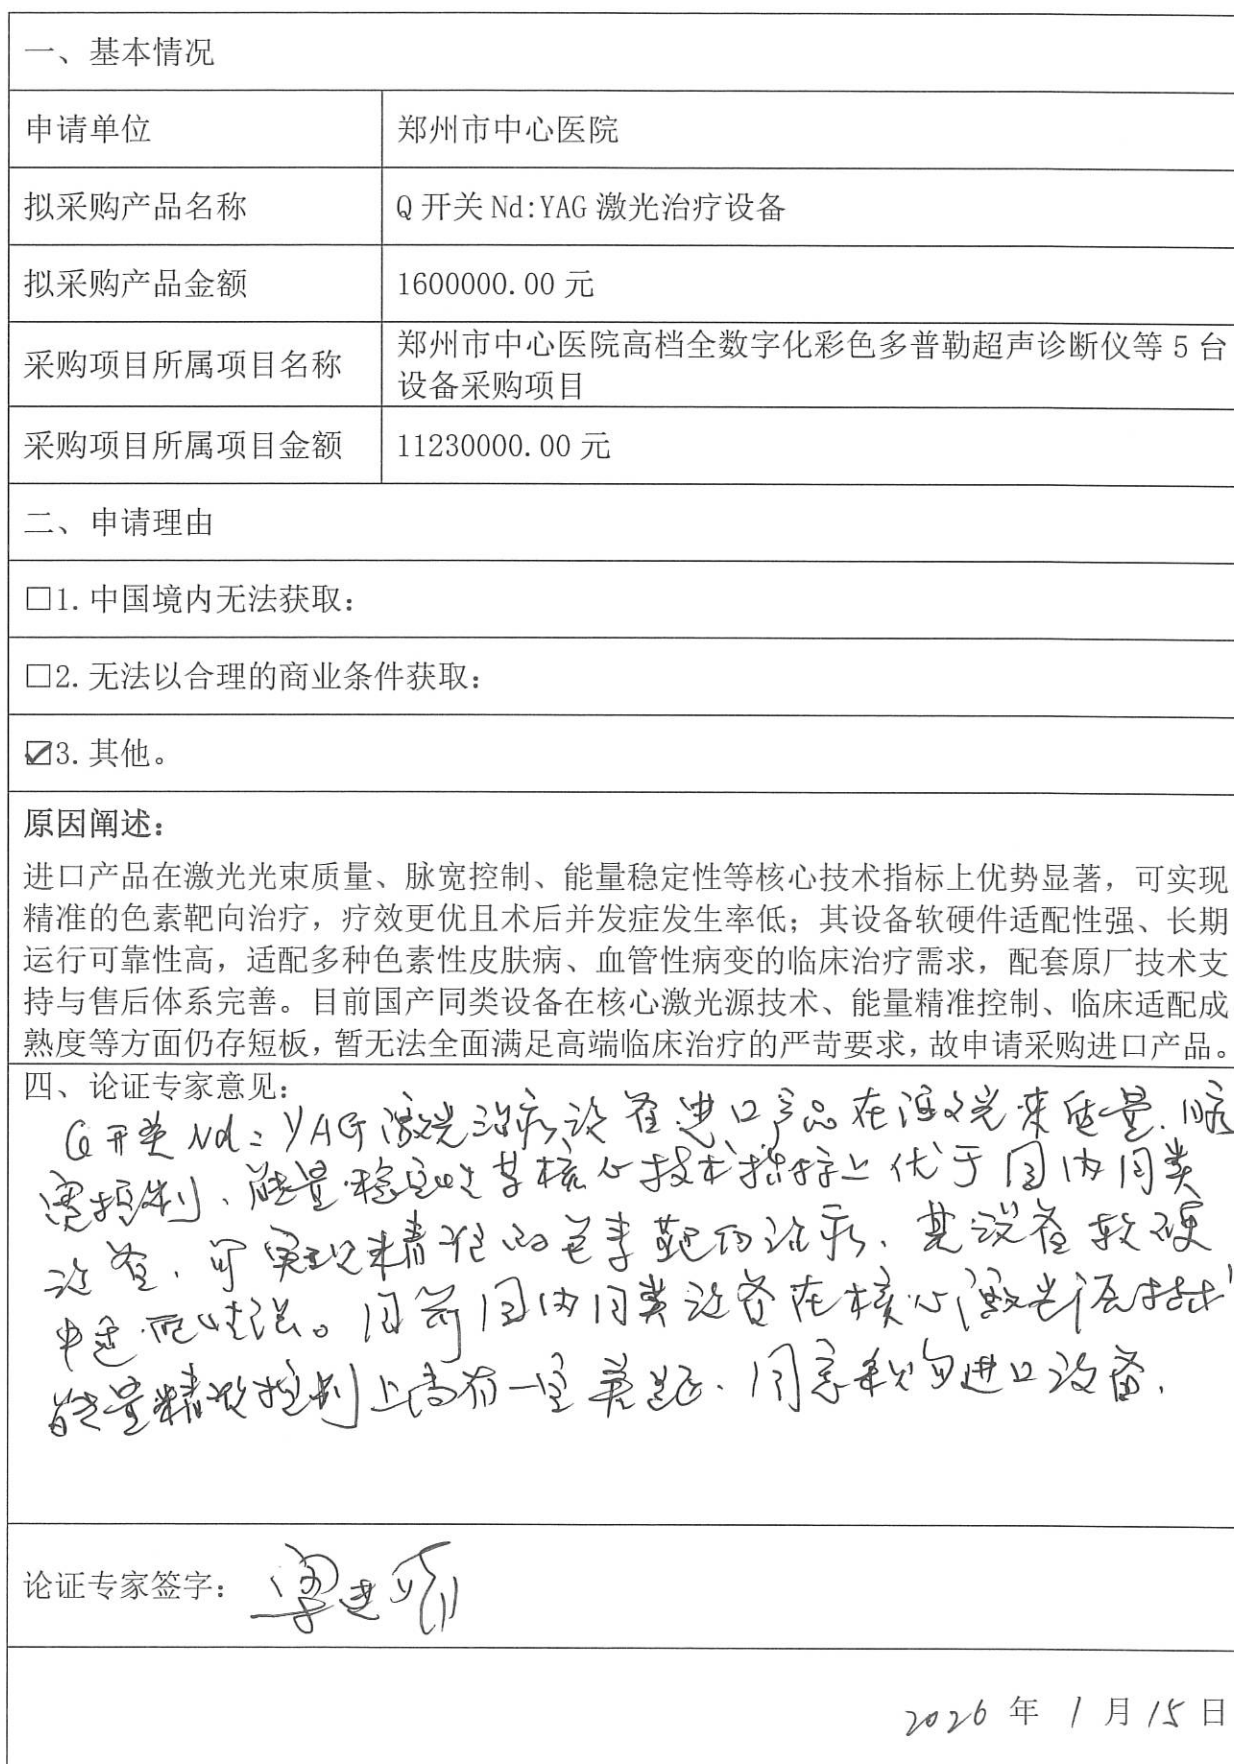 一、基本情况
申请单位
郑州市中心医院
拟采购产品名称
Q开关Nd:YAG激光治疗设备
拟采购产品金额
1600000.00元
采购项目所属项目名称
郑州市中心医院高档全数字化彩色多普勒超声诊断仪等5台
设备采购项目
采购项目所属项目金额
11230000.00元
二、申请理由
□1.中国境内无法获取：
□2.无法以合理的商业条件获取：
☑3.其他。
原因阐述：
进口产品在激光光束质量、脉宽控制、能量稳定性等核心技术指标上优势显著，可实现
精准的色素靶向治疗，疗效更优且术后并发症发生率低；其设备软硬件适配性强、长期
运行可靠性高，适配多种色素性皮肤病、血管性病变的临床治疗需求，配套原厂技术支
持与售后体系完善。目前国产同类设备在核心激光源技术、能量精准控制、临床适配成
熟度等方面仍存短板，暂无法全面满足高端临床治疗的严苛要求，故申请采购进口产品。
四、论证专家意见：
Q开关Nd:YAG激光治疗设备进口产品在激光束质量、脉
宽控制、能量稳定性等核心技术指标上优于国内同类
设备，可实现精准的色素靶向治疗、其设备软硬
件适配性强。目前国内同类设备在核心激光源技术
能量精准控制上尚有一定差距、同意采购进口设备。
论证专家签字：
2026年1月15日